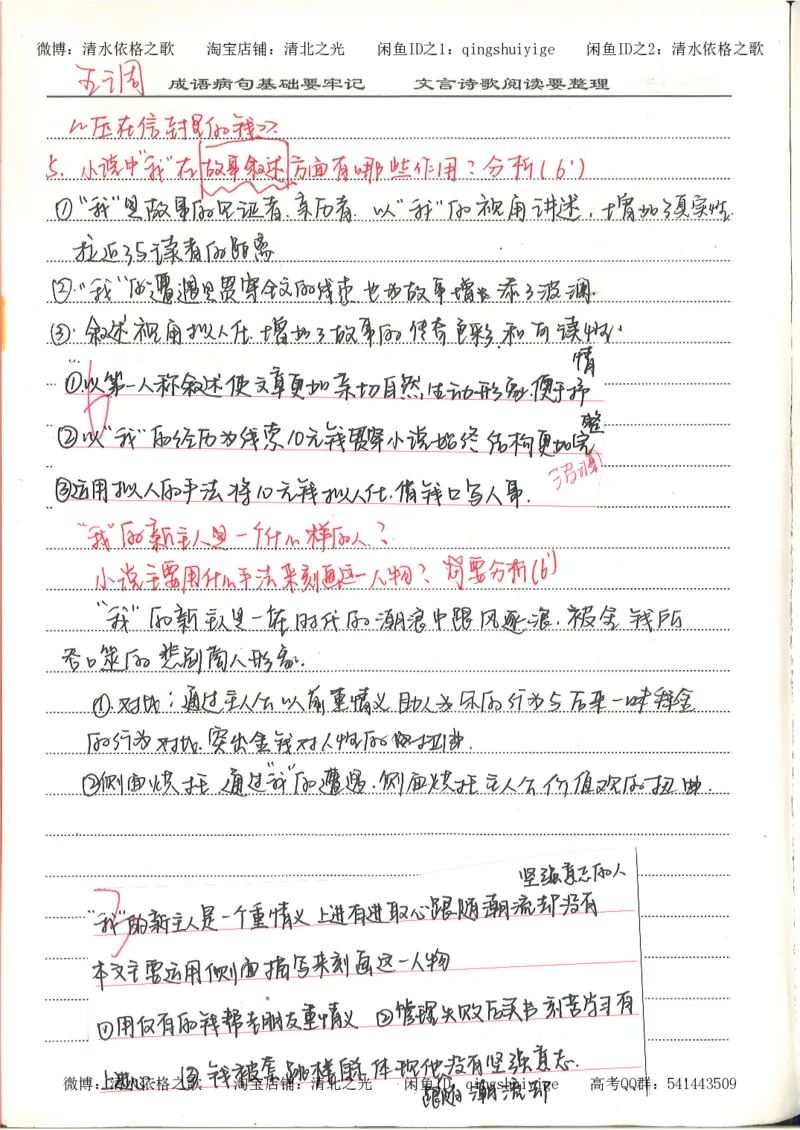 微博：清水依格之歌 淘宝店铺：清北之光 闲鱼ID之1：qingshuiyige 闲鱼ID之2：清水依格之歌
五调 成语病句基础要牢记 文言诗歌阅读要整理
《压在信封里的钱》
5. 小说中“我”在故事叙述方面有哪些作用？分析(6')
①“我”是故事的见证者、亲历者. 以“我”的视角讲述，增加了真实性.
拉近了与读者的距离
②.“我”的遭遇是贯穿全文的线索 也为故事增添了波澜.
③. 叙述视角拟人化. 增加了故事的传奇色彩和可读性.
①以第一人称叙述使文章更加亲切自然,生动形象.便于抒情
②以“我”的经历为线索10元钱贯穿小说始终 结构更加完整
③运用拟人的手法将10元钱拟人化,借钱口写人事.
“我”的新主人是一个什么样的人？
小说主要用什么手法来刻画这一人物？简要分析(6')
“我”的新主人是一在时代的潮浪中跟风逐浪. 被金钱所
吞噬的悲剧商人形象.
①.对比：通过主人公以前重情义 助人为乐的行为与后来一味拜金
的行为对比. 突出金钱对人性的扭曲.
②侧面烘托 通过“我”的遭遇. 侧面烘托主人公价值观的扭曲.
“我”的新主人是一个重情义 上进有进取心跟随潮流却没有
坚强意志的人
本文主要运用侧面描写来刻画这一人物
①用仅有的钱帮老朋友重情义 ②管理失败后买书刻苦学习有
上进心 ③钱被套 跳楼 体现他没有坚强意志.
跟随潮流却
微博：清水依格之歌 淘宝店铺：清北之光 闲鱼ID之1：qingshuiyige 高考QQ群：541443509